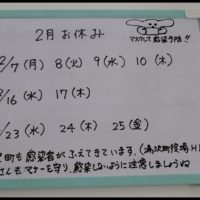 2月お休み
マスクして感染予防!!
2/7(月) 8(火) 9(水) 10(木)
2/16(水) 17(木)
2/23(水) 24(木) 25(金)
町も感染者がふえてきています。(湯沢町役場HP
さんもマナーを守り、感染しないように注意しましょうね